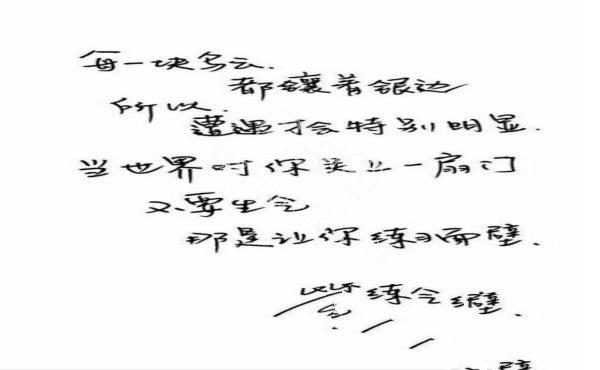 每一块乌云.
都镶着银边
所以.
遭遇才会特别明显.
当世界对你关上一扇门
不要生气
那是让你练习面壁.
练
壁.
壁